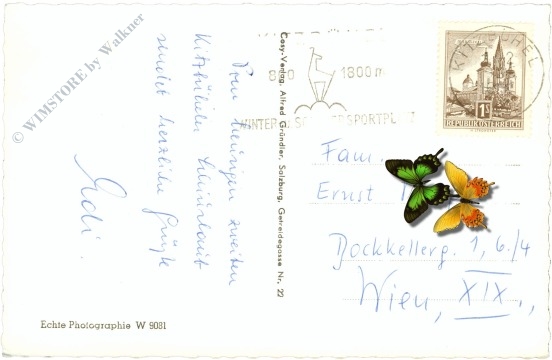 © WIMSTORE by Walkner
Vom heurigen zweiten
Kitzbühler Skiurlaub
sendet herzliche Grüße
Edi.
Cosy-Verlag, Alfred Gründler, Salzburg, Getreidegasse Nr. 22
800 1800 m
WINTER SPORTPLATZ
KITZBÜHEL
1S
REPUBLIK ÖSTERREICH
Fam.
Ernst
Bockkellerg. 1, 6./4
Wien, XIX.,
Echte Photographie W 9081